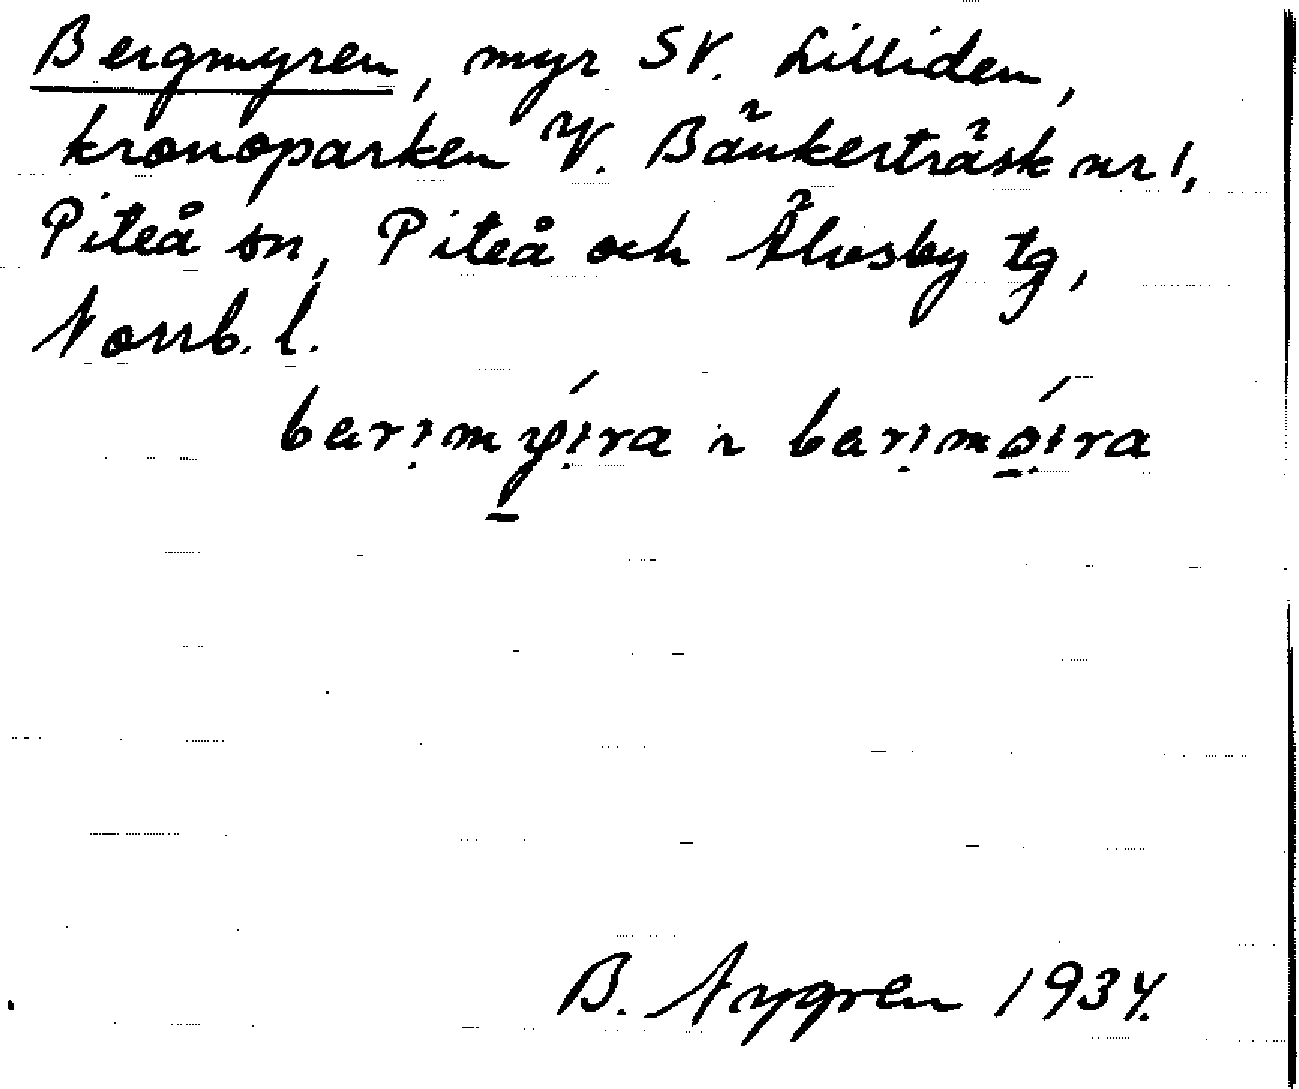 Bergmyren, myr SV. Lilliden,
kronoparken V. Bänkerträsk nr 1,
Piteå sn, Piteå och Älvsby tg,
Norrb. l.
B. Nygren 1934.